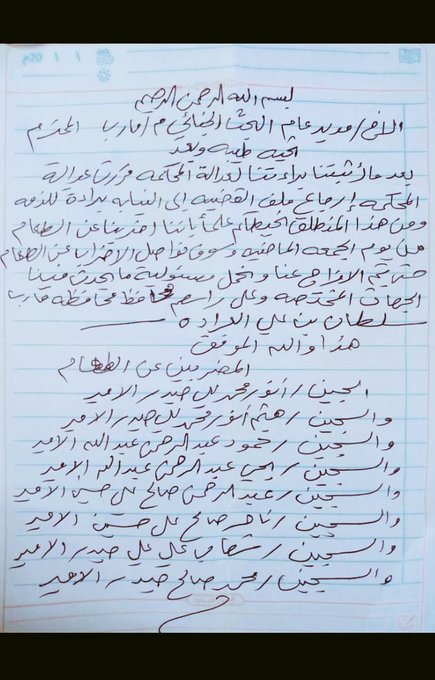 بسم الله الرحمن الرحيم
الاخ/مدير عام البحث الجنائي م/مارب المحترم
تحيه طيبه وبعد
بعد ما اثبتنا براءتنا لعدالة المحكمه قررت عدالة
المحكمه إرجاع ملف القضيه إلى النيابه براءة للذمه
ومن هذا المنطلق نحيطكم علماً باننا اضربنا عن الطعام
من يوم الجمعه الماضيه وسوف نواصل الاضراب عن الطعام
حتى يتم الافراج عنا ونحمل مسئولية ما يحدث فينا
الجهات المختصه وعلى راسهم محافظ محافظة مارب
سلطان بن علي العرادة
هذا والله الموفق
المضربين عن الطعام
السجين/ انور محمد علي صيدر الامير
والسجين/ هيثم انور محمد علي صيدر الامير
والسجين/ حمود عبدالرحمن عبدالله الامير
والسجين/ يحي عبدالرحمن عبدالله الامير
والسجين/ عبدالرحمن صالح علي حسين الامير
والسجين/ ناصر صالح علي حسين الامير
والسجين/ علي علي صيدر الامير
والسجين/ محمد صالح صيدر الامير